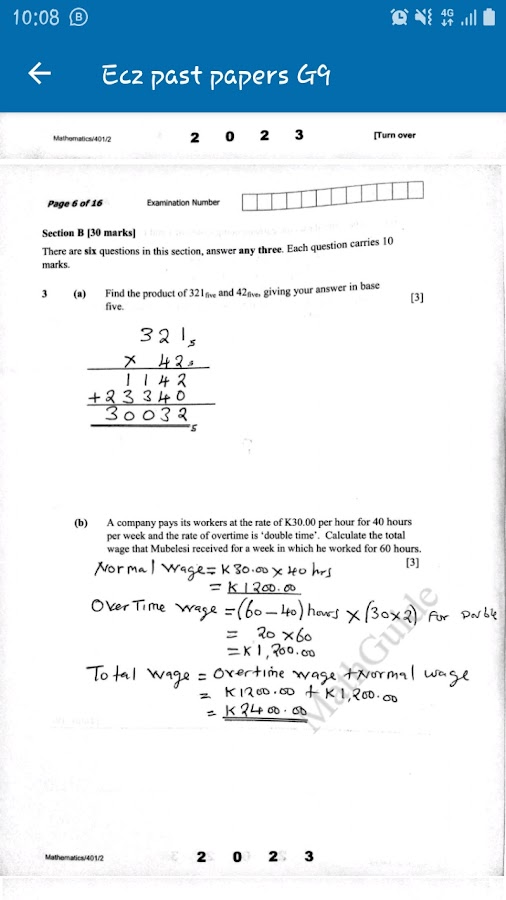 10:08 B 4G
Ecz past papers G9
Mathematics/401/2 2 0 2 3 [Turn over
Page 6 of 16 Examination Number
Section B [30 marks]
There are six questions in this section, answer any three. Each question carries 10
marks.
3 (a) Find the product of 321five and 42five, giving your answer in base
five. [3]
321₅
× 42₅
1142
+23340
30032₅
(b) A company pays its workers at the rate of K30.00 per hour for 40 hours
per week and the rate of overtime is 'double time'. Calculate the total
wage that Mubelesi received for a week in which he worked for 60 hours.
[3]
Normal Wage = K30.00 × 40 hrs
= K1200.00
OverTime wage = (60 – 40) hours × (30×2) For Double
= 20 × 60
= K1,200.00
Total wage = overtime wage + Normal wage
= K1200.00 + K1,200.00
= K2400.00
MathGuide
Mathematics/401/2 2 0 2 3